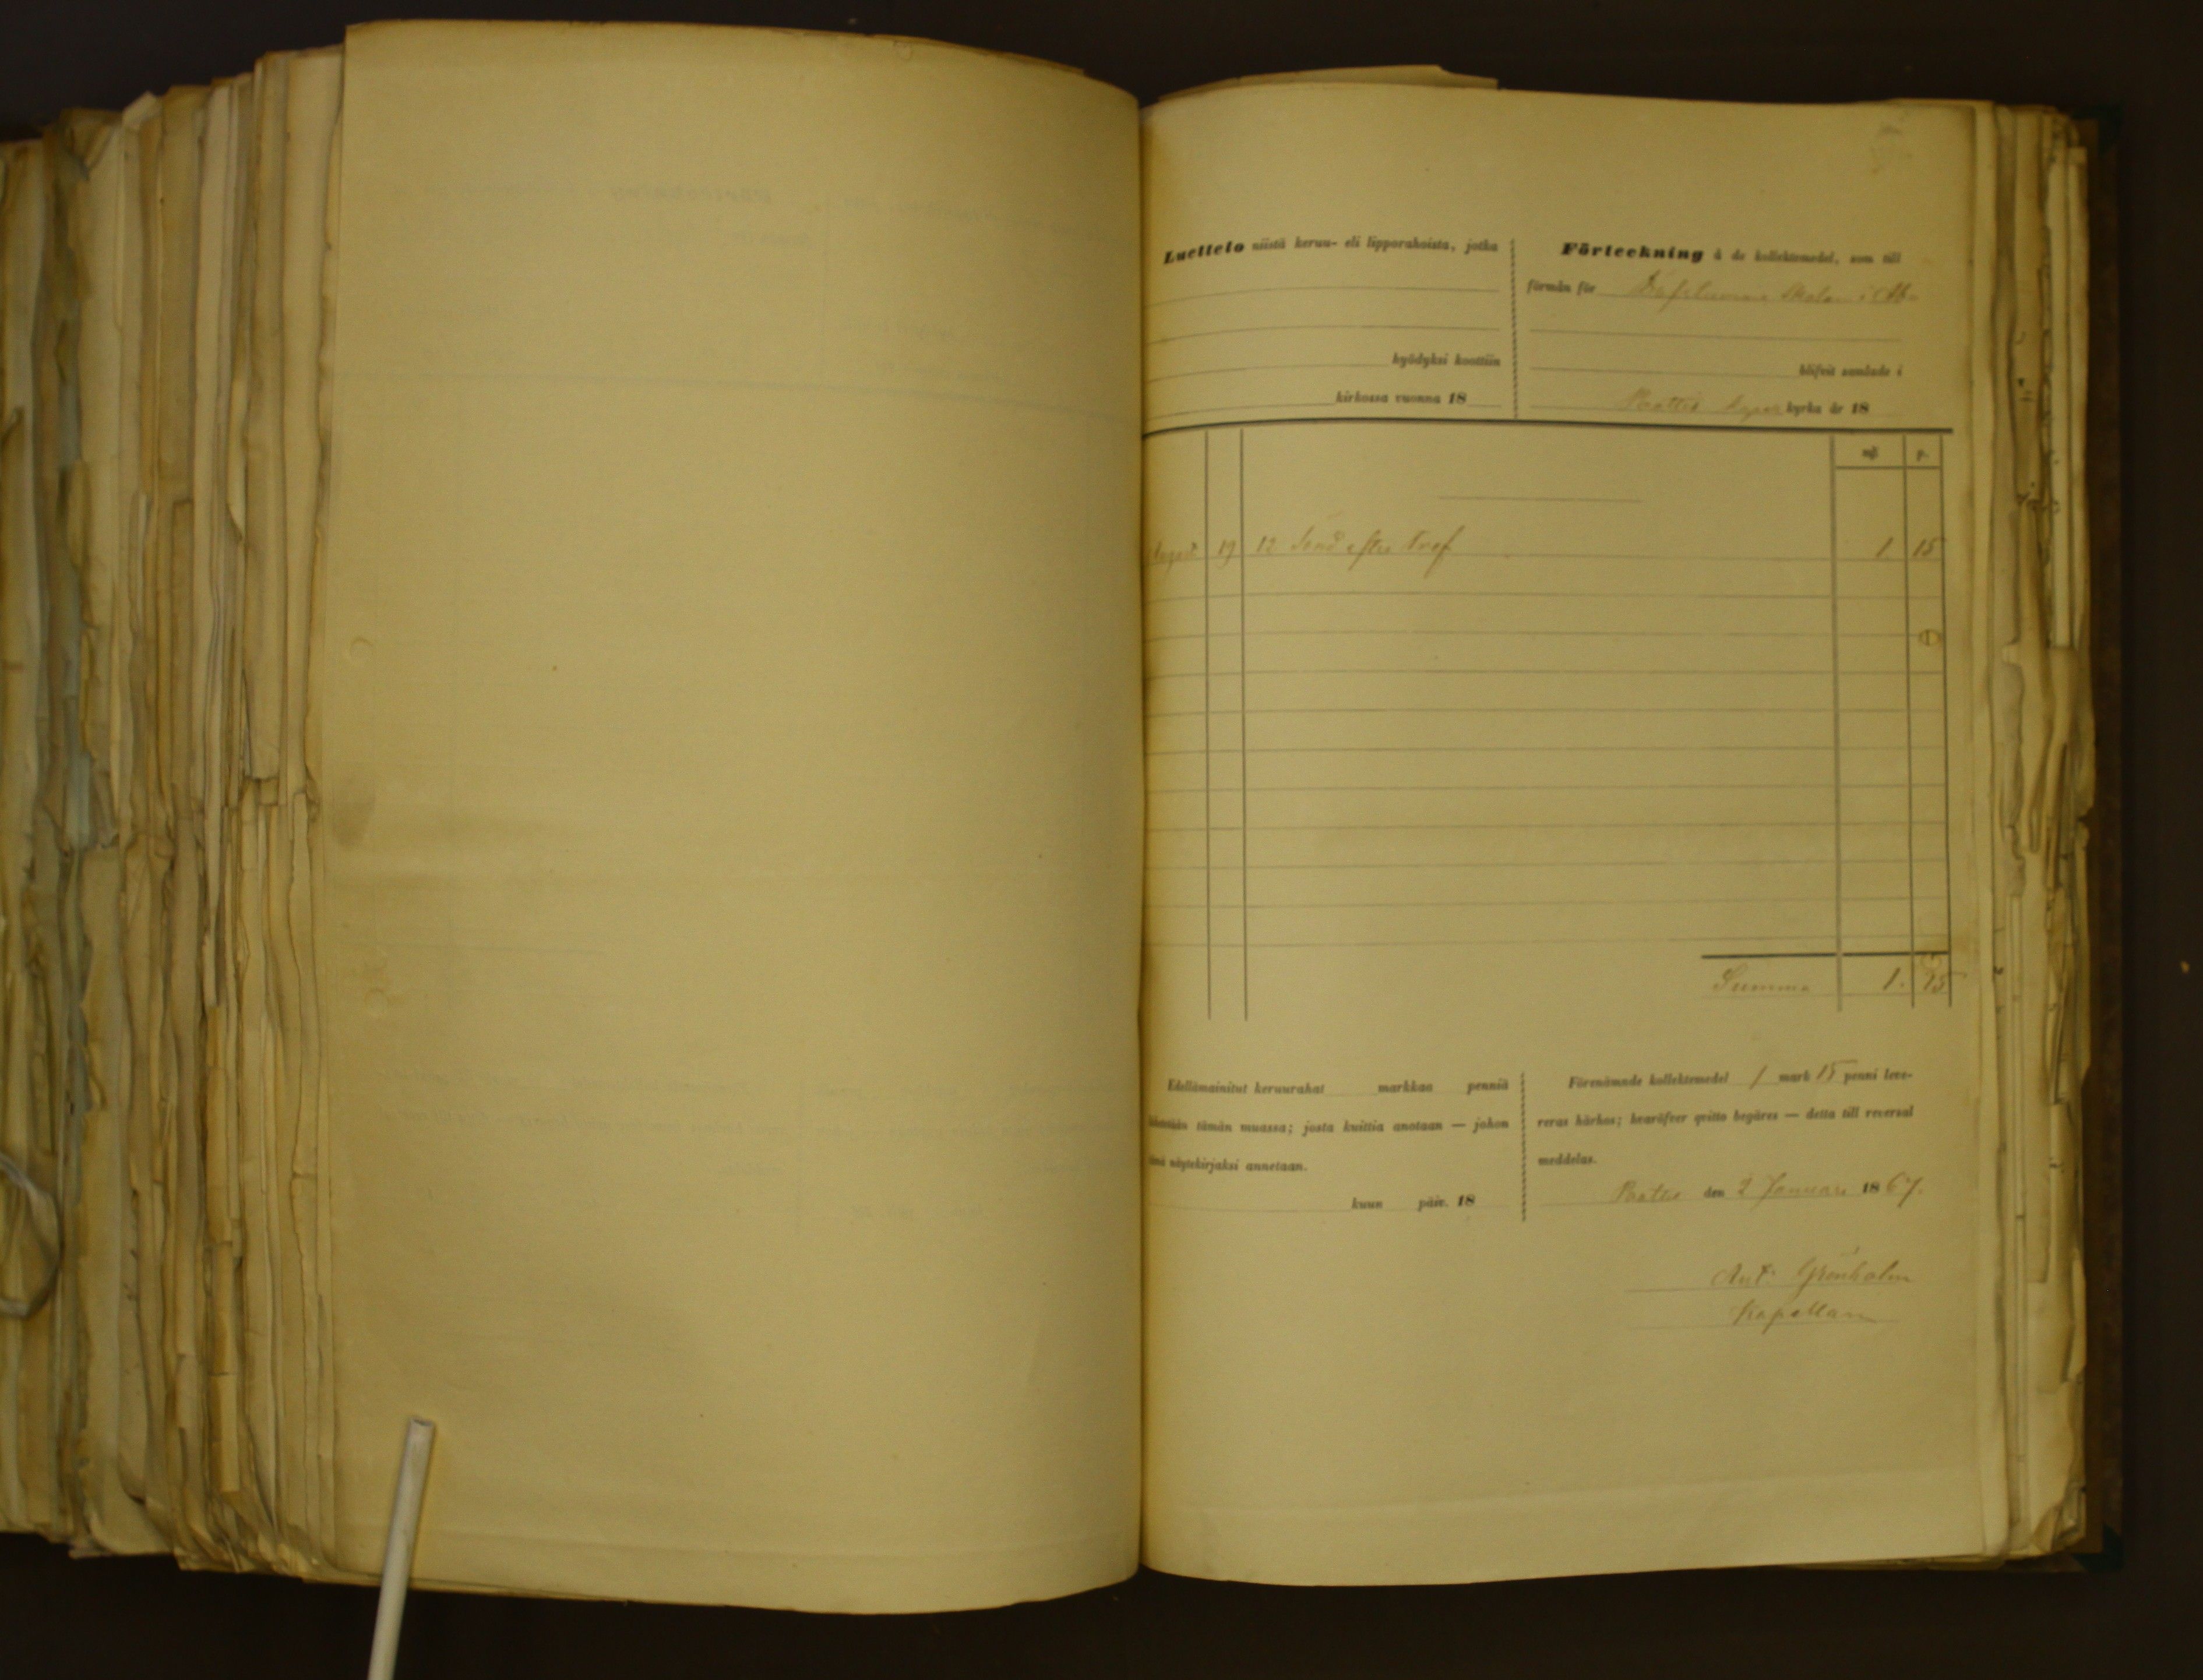 Luettelo niistä keruu- eli lipporahoista, jotka
hyödyksi koottiin
kirkossa vuonna 18
Förteckning å de kollektemedel, som till
förmån för Döfstumme Skolan i Åbo
blifvit samlade i
Pattis kyrka år 18
mk p.
August 19 12 Sönd. efter Tref. 1 15
Summa 1. 15
Edellämainitut keruurahat markkaa penniä
lähetetään tämän muassa; josta kuittia anotaan — johon
tämä näytekirjaksi annetaan.
kuun päiv. 18
Förenämnde kollektemedel 1 mark 15 penni leve-
reras härhos; hvaröfver qvitto begäres — detta till reversal
meddelas.
Pattis den 2 Januari 1867.
Ant. Grönholm
Kapellan